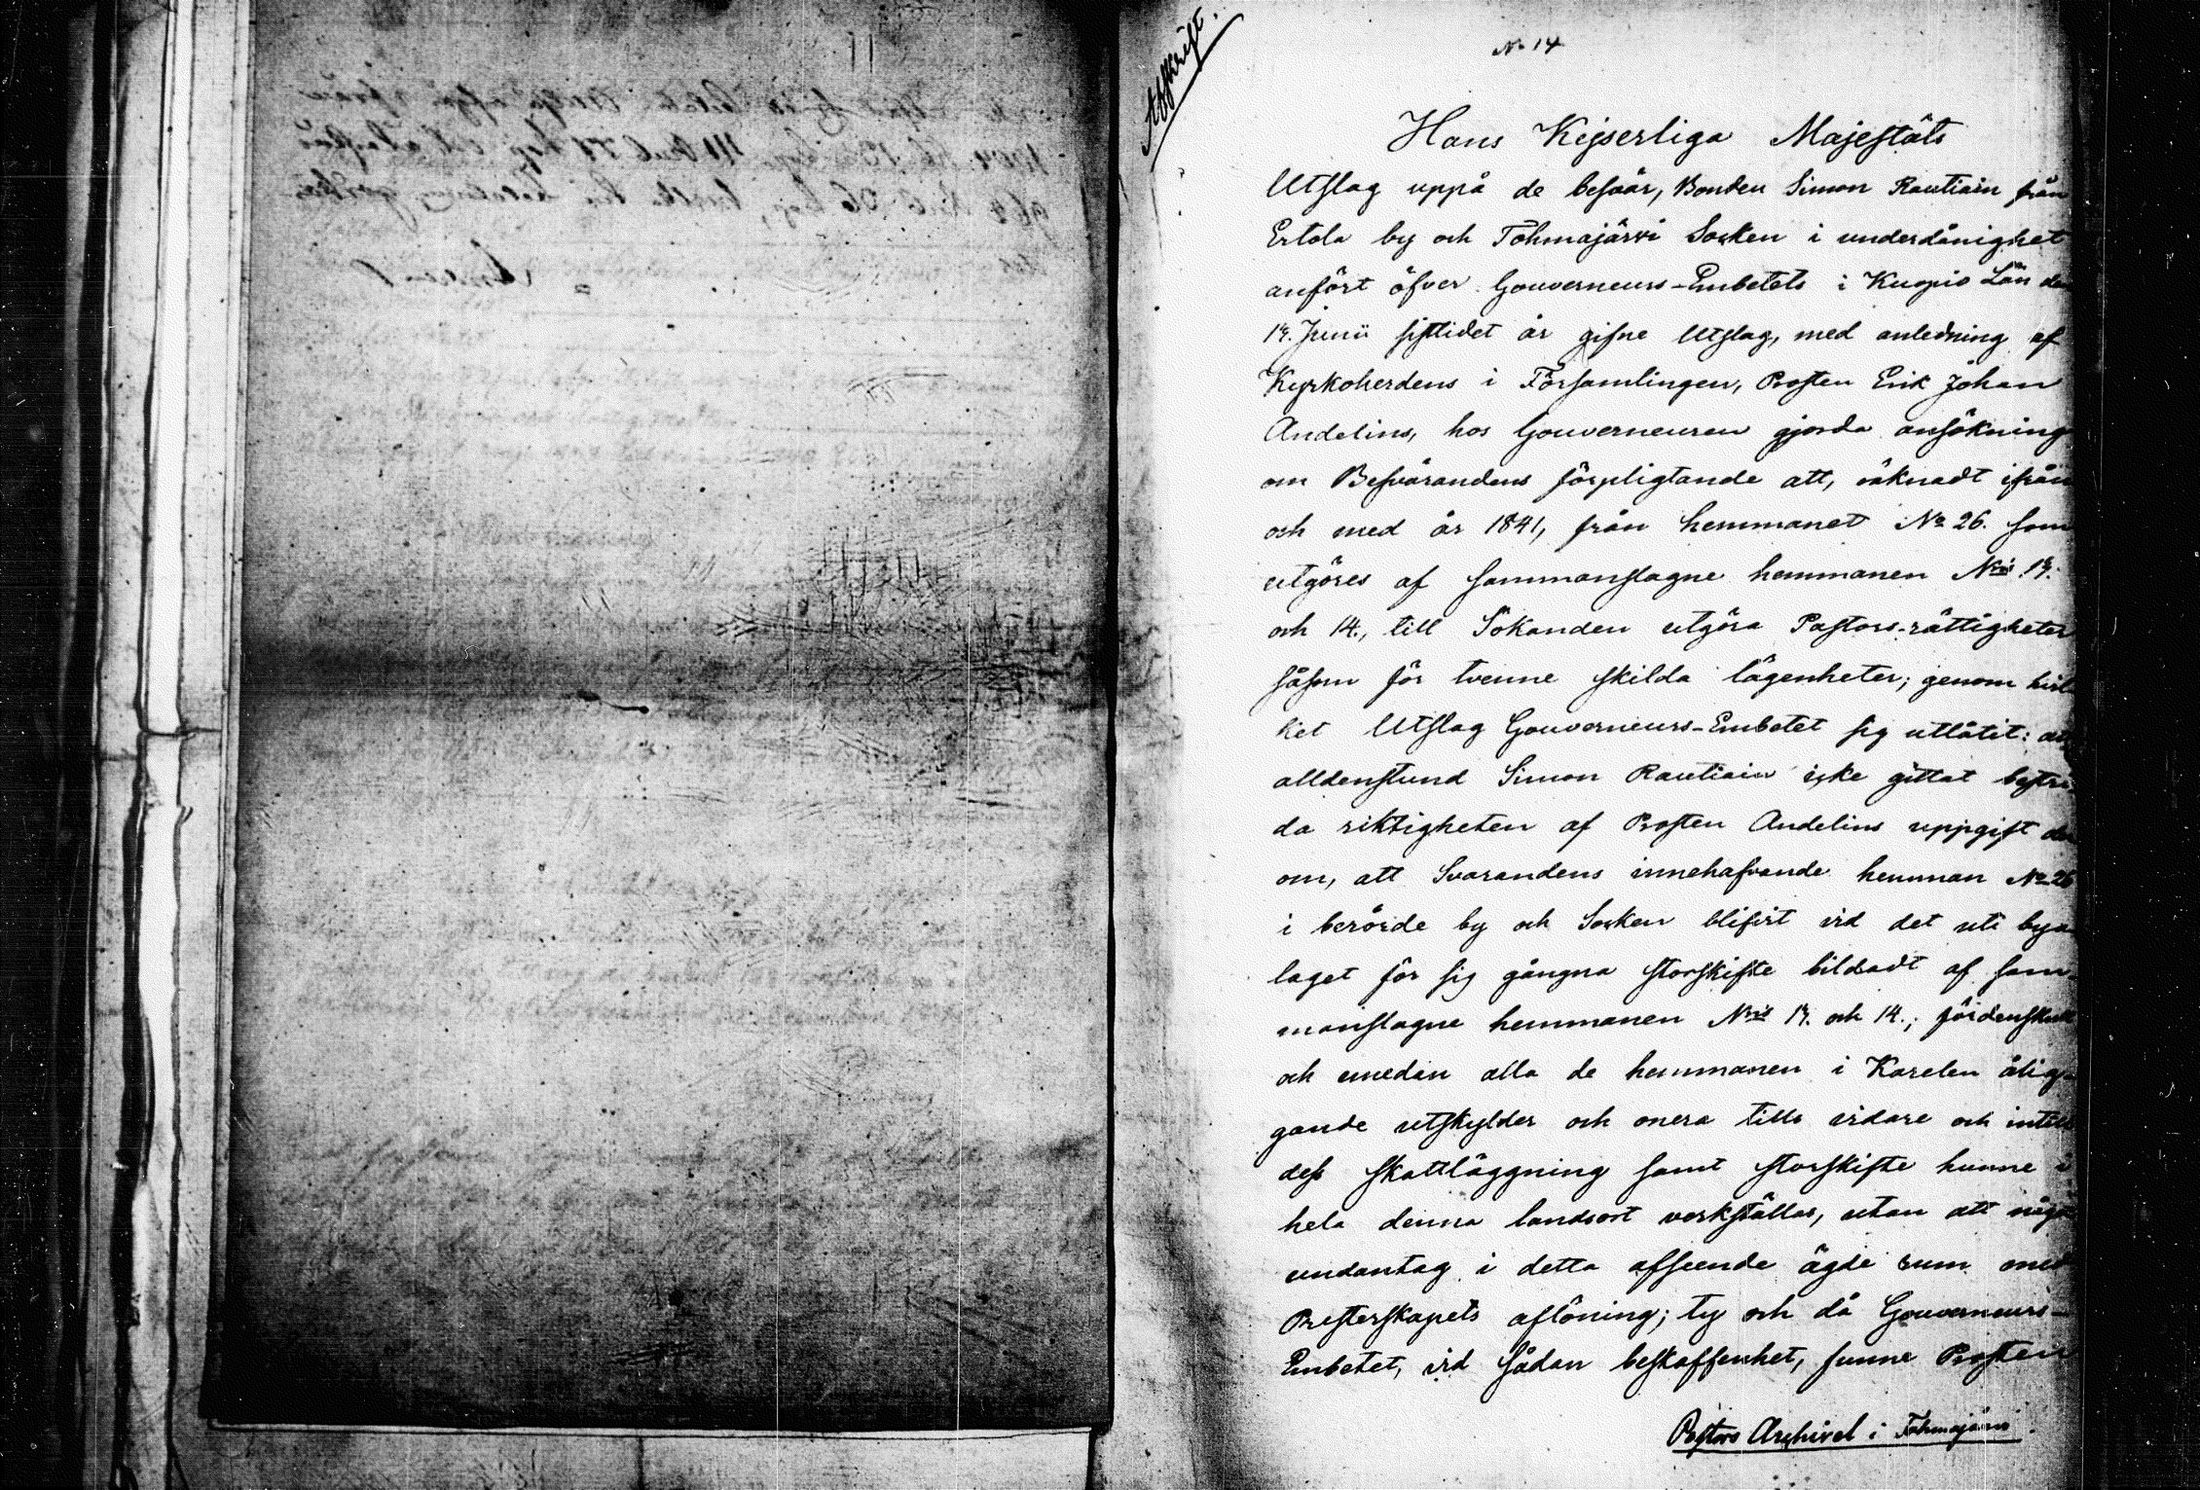 Afskrift.
No 14
Hans Kejserliga Majestäts
Utslag uppå de besvär, Bonden Simon Rautiain från
Ertola by och Tohmajärvi Socken i underdånighet
anfört öfver Gouverneurs-Embetets i Kuopio Län den
19. Junii sistlidet år gifne Utslag, med anledning af
Kyrkoherdens i Församlingen, Prosten Erik Johan
Andelins, hos Gouverneuren gjorda ansökning
om Besvärandens förpligtande att, räknadt ifrån
och med år 1841, från hemmanet No 26. som
utgöres af sammanslagne hemmanen Nris 19.
och 14., till Sökanden utgöra Pastors-rättigheter
såsom för tvenne skilda lägenheter; genom hvil-
ket Utslag Gouverneurs-Embetet sig utlåtit: att
alldenstund Simon Rautiain icke gittat bestri-
da riktigheten af Prosten Andelins uppgift der
om, att Svarandens innehafvande hemman No 26
i berörde by och Socken blifvit vid det uti bya
laget för sig gångna storskifte bildadt af sam-
manslagne hemmanen Nris 19. och 14.; fördenskull
och emedan alla de hemmanen i Karelen ålig-
gande utskylder och onera tills vidare och intill
dess skattläggning samt storskifte hunne i
hela denna landsort verkställas, utan att något
undantag i detta afseende ägde rum med
Presterskapets aflöning; ty och då Gouverneurs-
Embetet, vid sådan beskaffenhet, funne Prosten
Pastors Archivet i Tohmajärvi.